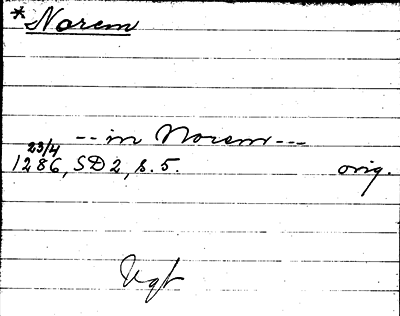 *Norem
--in Norem---
23/4
1286, SD2, s.5. orig.
Ugt